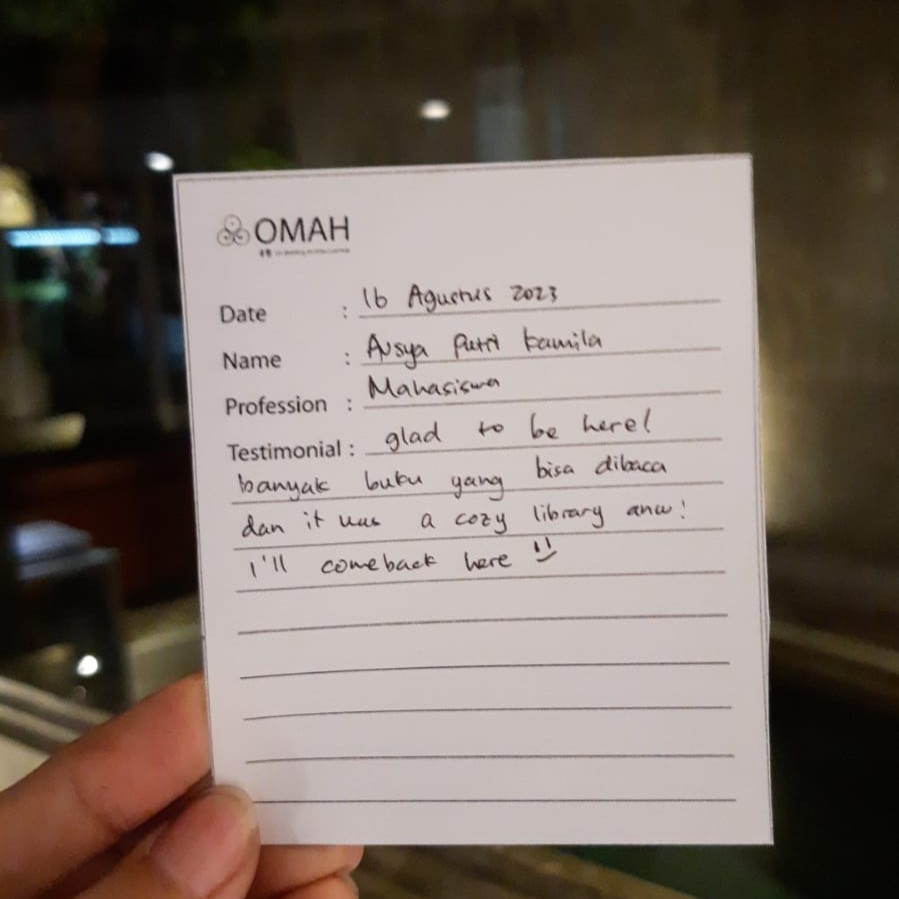 OMAH
Date : 16 Agustus 2023
Name : Putri Kamila
Profession : Mahasiswa
Testimonial : glad to be here!
banyak buku yang bisa dibaca
dan it was a cozy library anw!
I'll comeback here